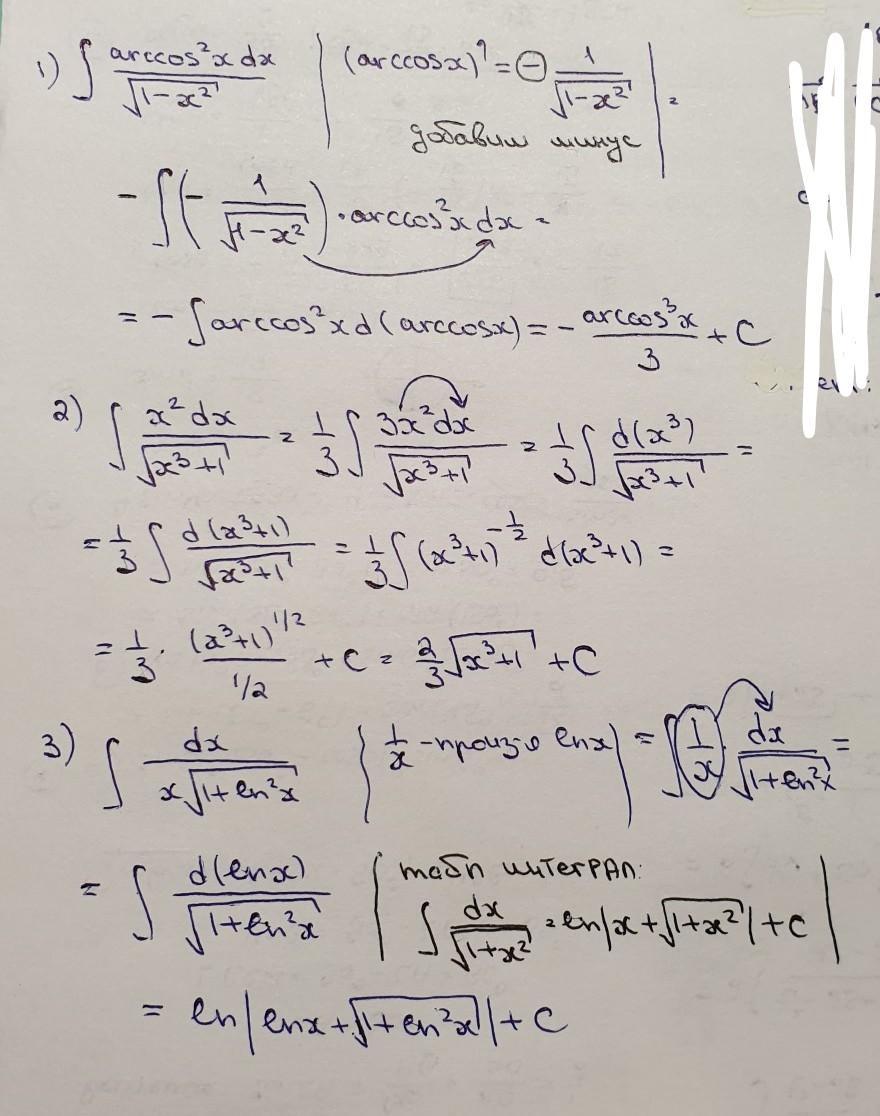 1) ∫ arccos²x dx / √(1-x²) | (arccosx)' = ⊖ 1/√(1-x²) | =
добавим минус
- ∫ (- 1/√(1-x²)) · arccos²x dx =
= - ∫ arccos²x d(arccosx) = - arccos³x / 3 + C
2) ∫ x² dx / √(x³+1) = 1/3 ∫ 3x² dx / √(x³+1) = 1/3 ∫ d(x³) / √(x³+1) =
= 1/3 ∫ d(x³+1) / √(x³+1) = 1/3 ∫ (x³+1)^(-1/2) d(x³+1) =
= 1/3 · (x³+1)^(1/2) / (1/2) + C = 2/3 √(x³+1) + C
3) ∫ dx / (x√(1+ln²x)) | 1/x - произ-я lnx | = ∫ 1/x · dx / √(1+ln²x) =
= ∫ d(lnx) / √(1+ln²x) | табл интеграл:
∫ dx / √(1+x²) = ln|x+√(1+x²)| + C |
= ln|lnx+√(1+ln²x)| + C